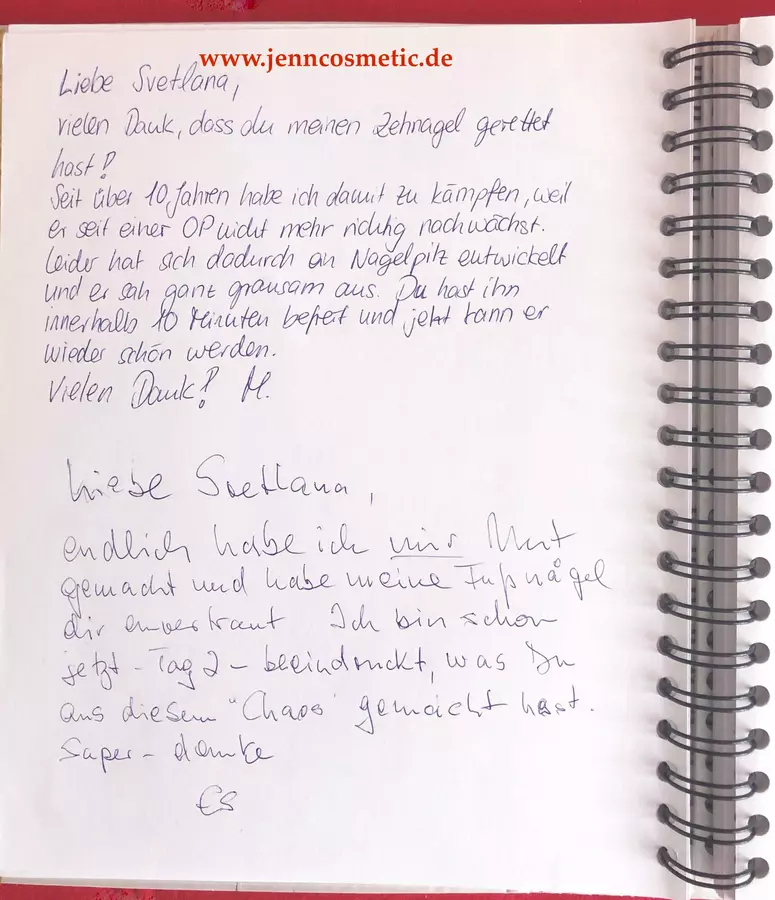 www.jenncosmetic.de
Liebe Svetlana,
vielen Dank, dass du meinen Zehnagel gerettet
hast!
Seit über 10 Jahren habe ich damit zu kämpfen, weil
er seit einer OP nicht mehr richtig nachwächst.
Leider hat sich dadurch an Nagelpilz entwickelt
und er sah ganz grausam aus. Du hast ihn
innerhalb 10 Minuten befreit und jetzt kann er
wieder schön werden.
Vielen Dank! M.
Liebe Svetlana,
endlich habe ich mir Mut
gemacht und habe meine Fußnägel
dir anvertraut Ich bin schon
jetzt - Tag 2 - beeindruckt, was Du
aus diesem "Chaos" gemacht hast.
Super - danke
ES